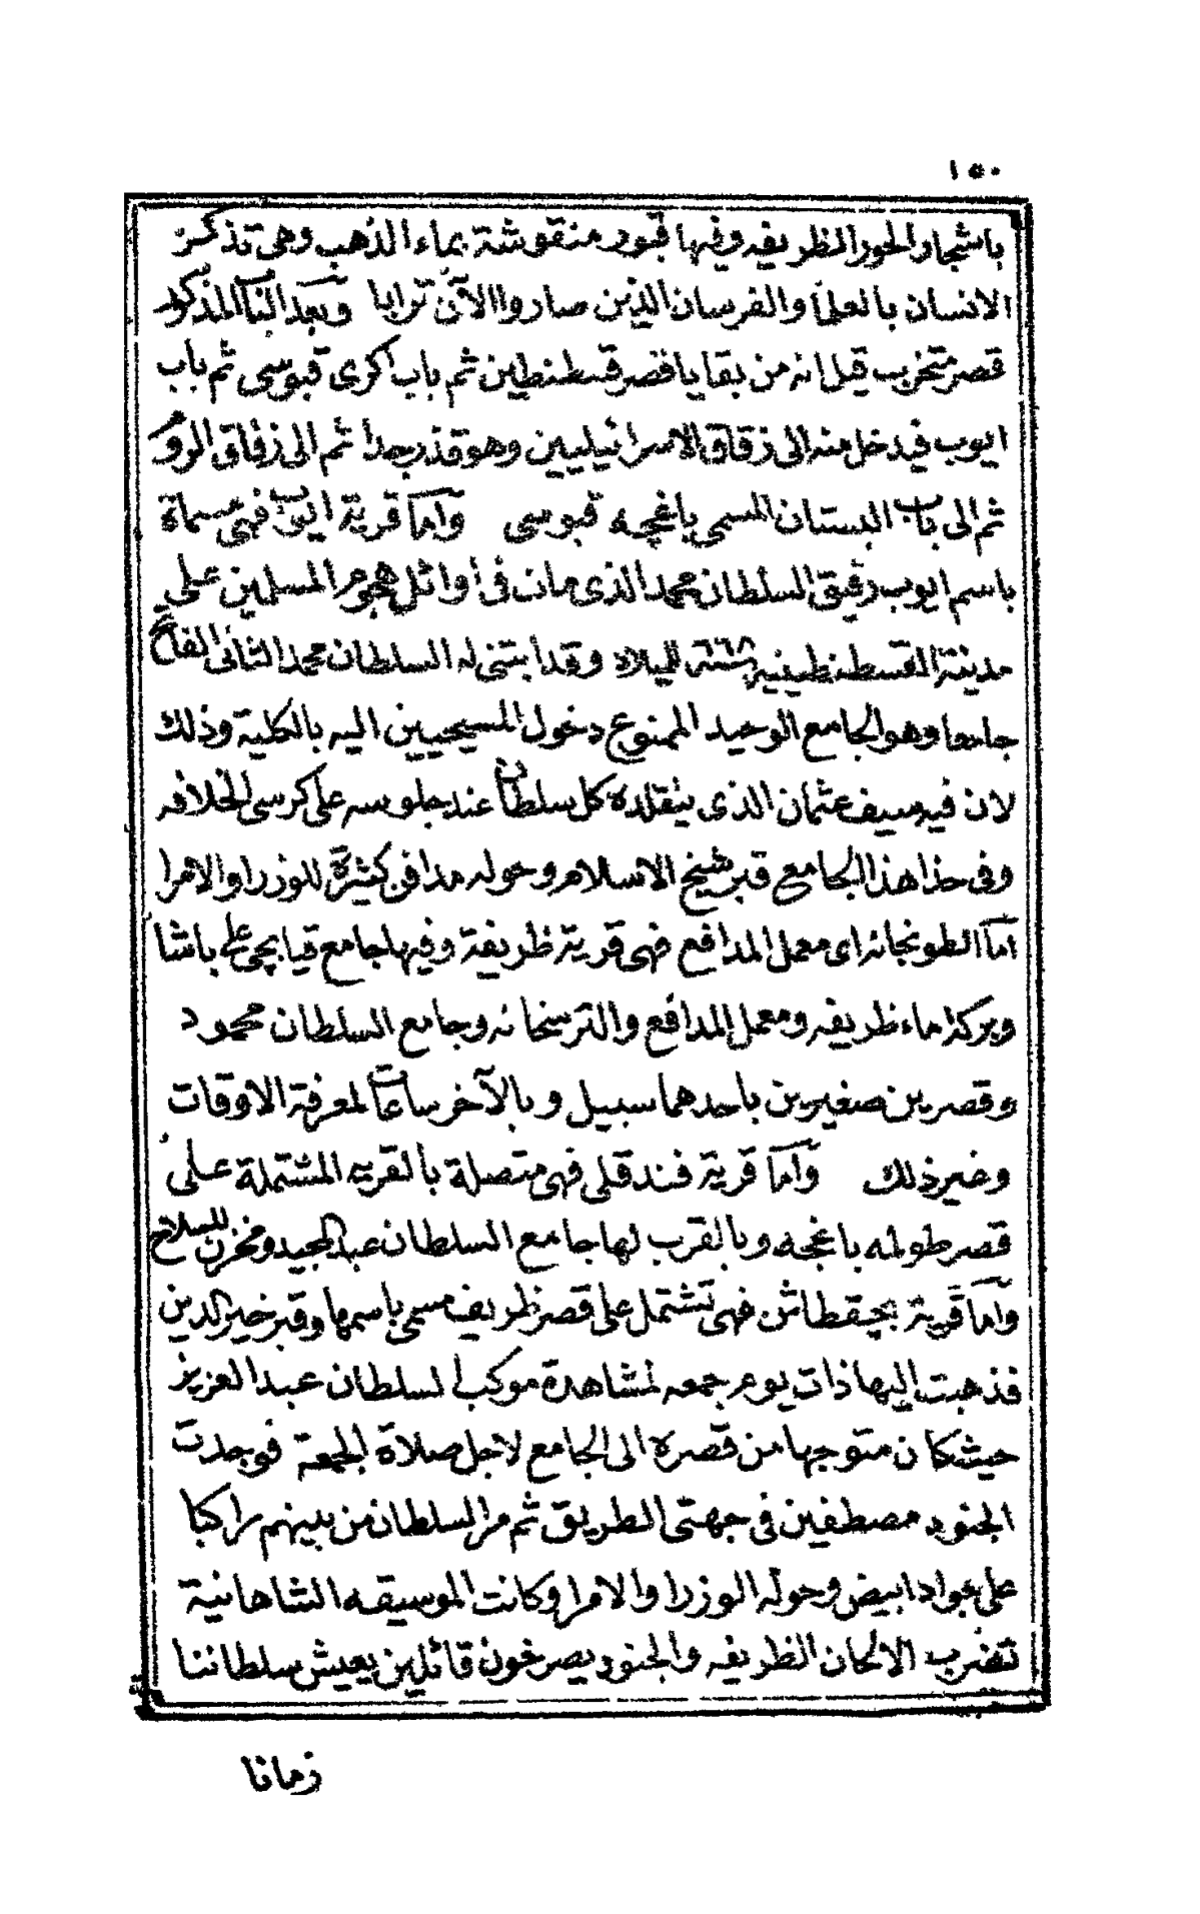 ١٥٠
باشجار الحور الظريفه وفيها قبور منقوشة بماء الذهب وهى تذكر
الانسان بالعلما والفرسان الذين صاروا الآن ترابا وبعد الباب المذكور
قصر متخرب قيل انه من بقايا قصر قسطنطين ثم باب اكرى قبوسى ثم باب
ايوب فيدخل منه الى زقاق الاسرائيليين وهو قذر جدا ثم الى زقاق الروم
ثم الى باب البستان المسمى باغچه قبوسى واما قرية ايوب فهى مسماة
باسم ايوب رفيق السلطان محمد الذى مات فى اوائل هجوم المسلمين على
مدينة القسطنطينية سنة ٦٦٨ للميلاد وقد ابتنى له السلطان محمد الثانى الفاتح
جامعا وهو الجامع الوحيد الممنوع دخول المسيحيين اليه بالكلية وذلك
لان فيه سيف عثمان الذى يتقلده كل سلطان عند جلوسه على كرسى الخلافه
وفى حذا هذا الجامع قبر شيخ الاسلام وحوله مدافن كثيرة للوزرا والامرا
اما الطوبخانه اى معمل المدافع فهى قرية ظريفة وفيها جامع قيابچى على باشا
وبركة ماء ظريفه ومعمل المدافع والترسخانه وجامع السلطان محمود
وقصرين صغيرين باحدهما سبيل وبالآخر ساعات لمعرفة الاوقات
وغير ذلك واما قرية فندقلى فهى متصلة بالقريه المشتملة على
قصر طولمه باغچه وبالقرب لها جامع السلطان عبد المجيد ومخزن للسلاح
واما قرية بچقطاش فهى تشتمل على قصر ظريف مسمى باسمها وقبر خير الدين
فذهبت اليها ذات يوم جمعه لمشاهدة موكب السلطان عبد العزيز
حيث كان متوجها من قصره الى الجامع لاجل صلاة الجمعة فوجدت
الجنود مصطفين فى جهتى الطريق ثم مر السلطان من بينهم راكبا
على جواد ابيض وحوله الوزرا والامرا وكانت الموسيقه الشاهانية
تضرب الالحان الظريفه والجنود يصرخون قائلين يعيش سلطاننا
زمانا